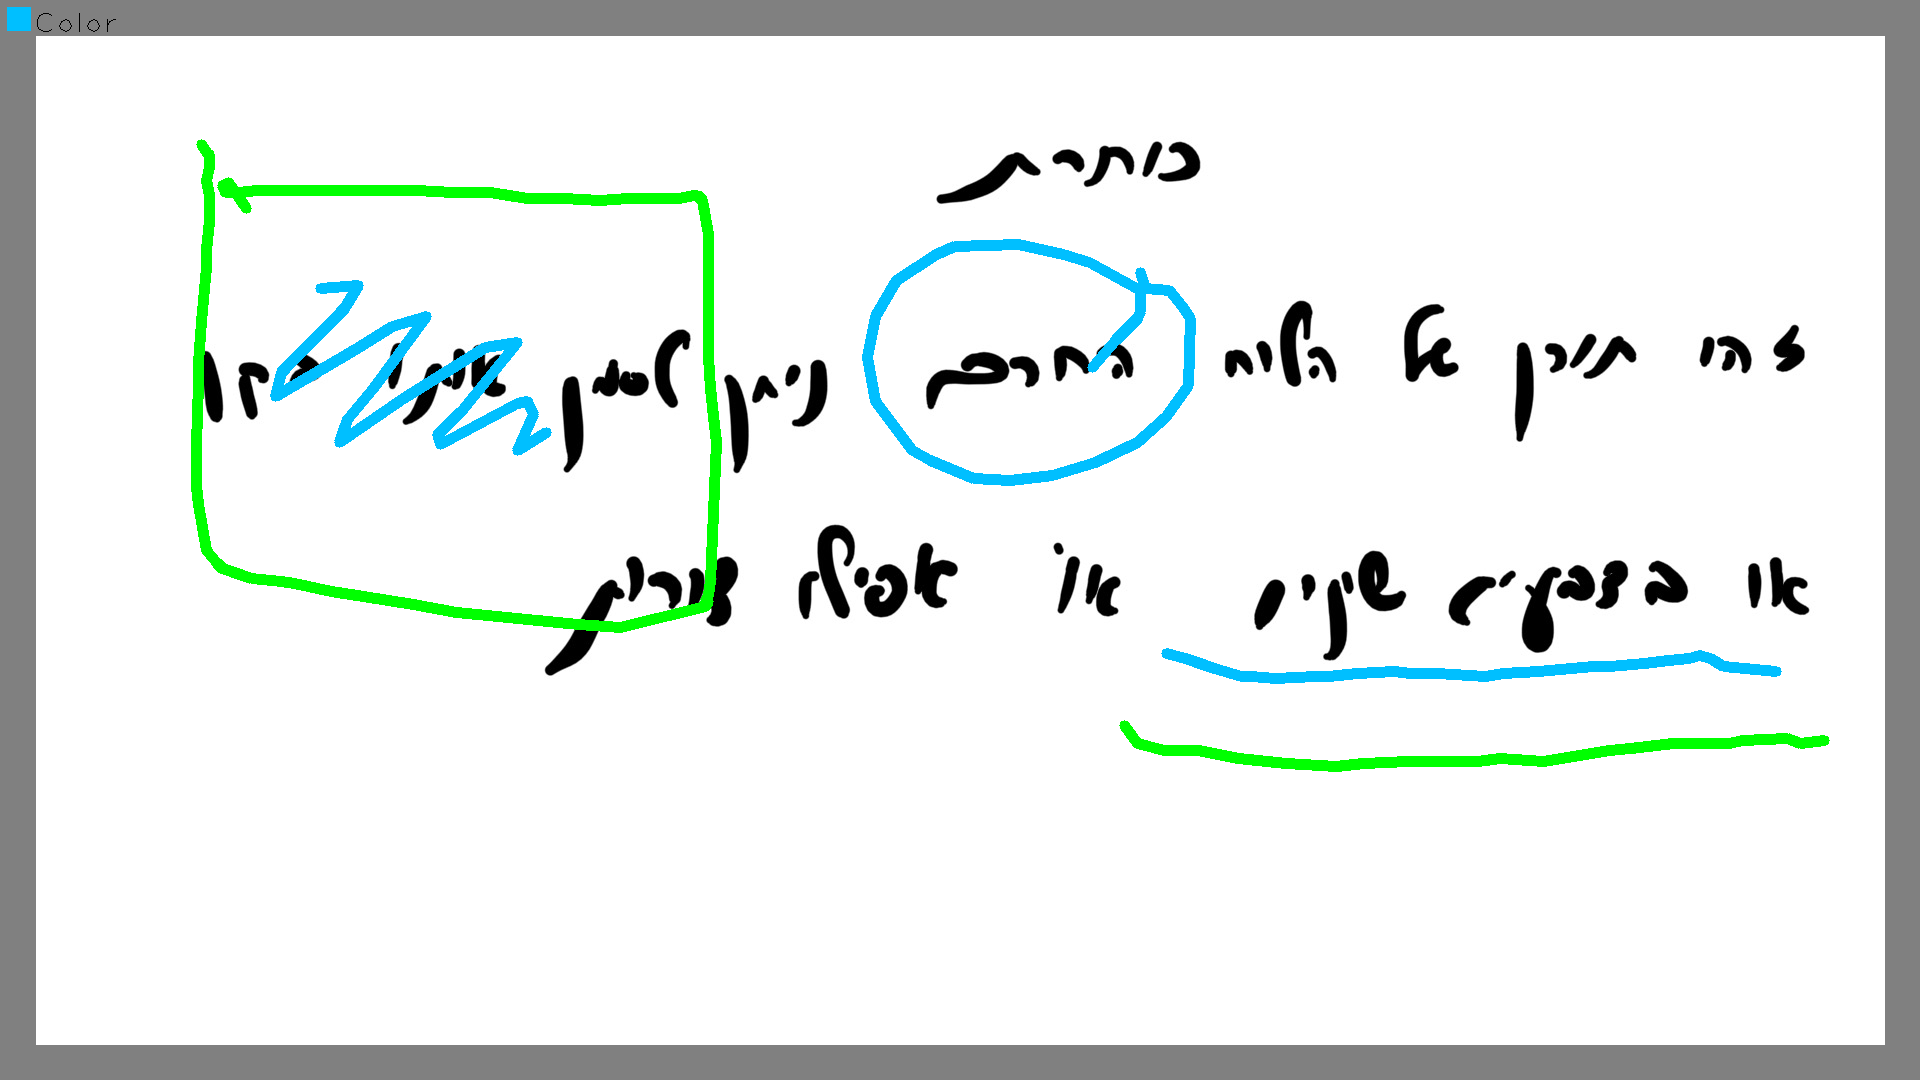 Color
כותרת
זהו תוכן של הלוח החכם ניתן לסמן אותו בקו
או בצבעים שונים או אפילו צורות